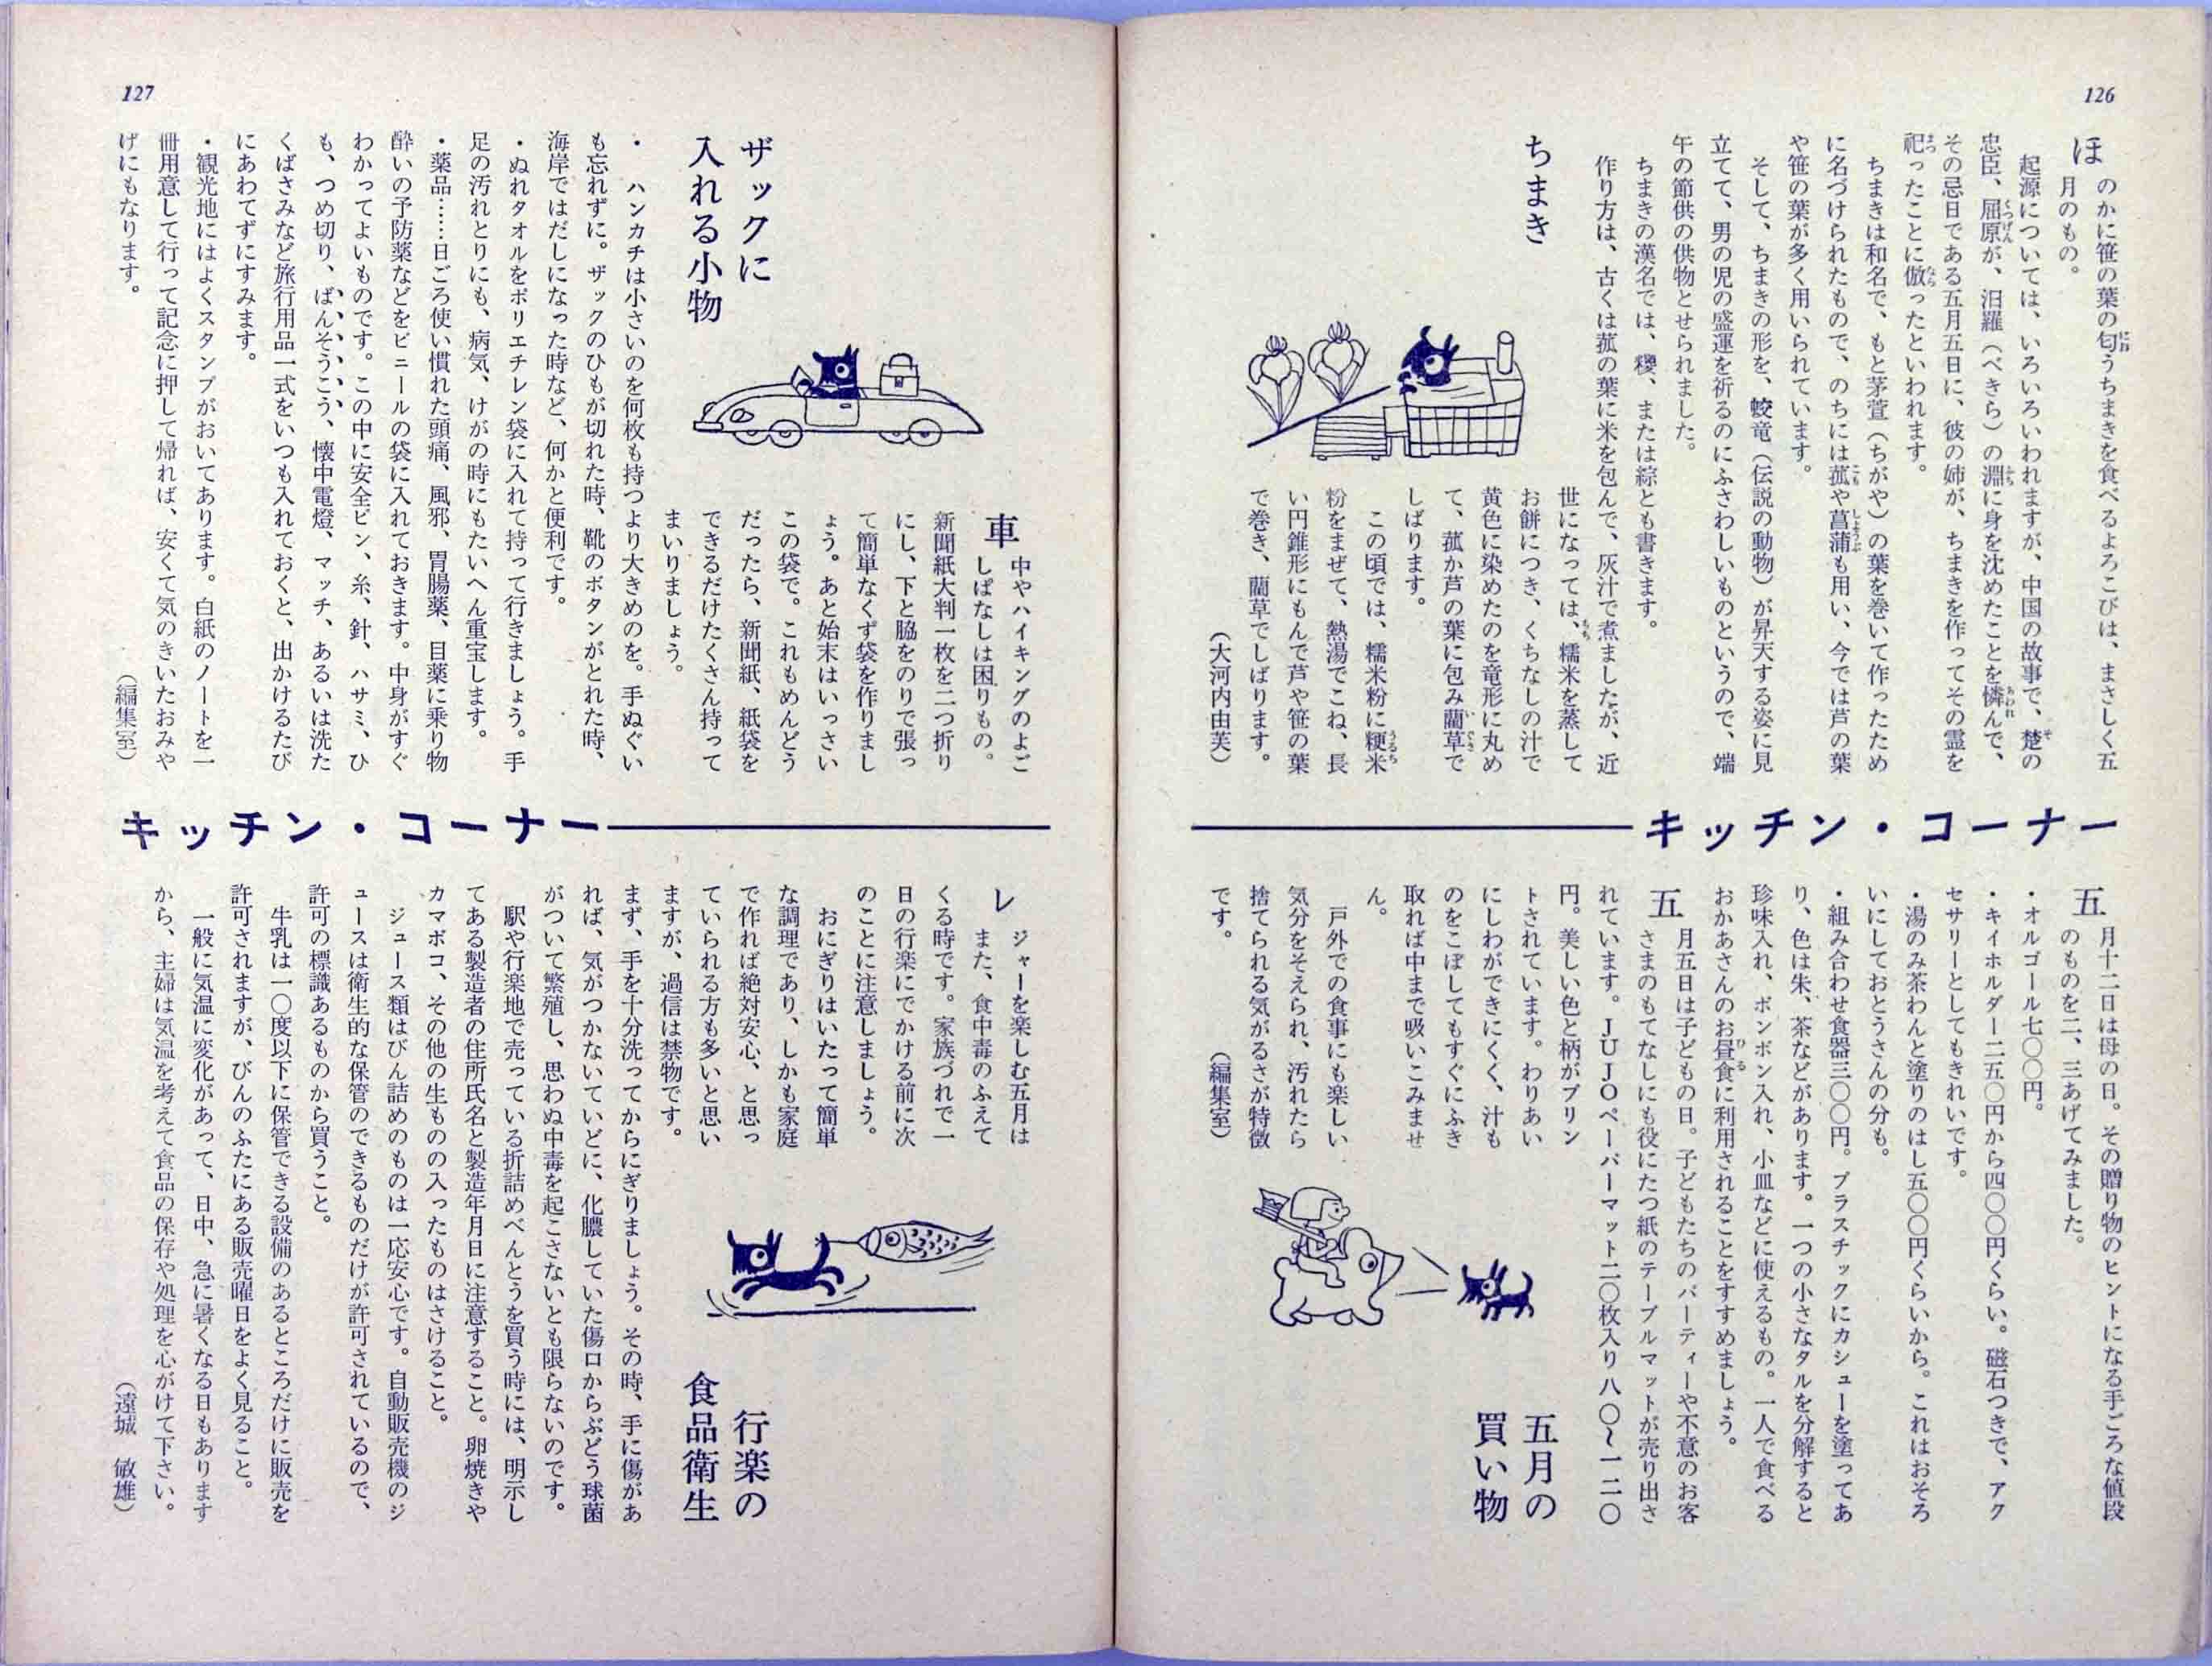 126
ちまき
ほのかに笹の葉の匂うちまきを食べるよろこびは、まさしく五
月のもの。
起源については、いろいろいわれますが、中国の故事で、楚の
忠臣、屈原が、汨羅（べきら）の淵に身を沈めたことを憐んで、
その忌日である五月五日に、彼の姉が、ちまきを作ってその霊を
祀ったことに倣ったといわれます。
ちまきは和名で、もと茅萱（ちがや）の葉を巻いて作ったため
に名づけられたもので、のちには菰や菖蒲も用い、今では芦の葉
や笹の葉が多く用いられています。
そして、ちまきの形を、蛟竜（伝説の動物）が昇天する姿に見
立てて、男の児の盛運を祈るのにふさわしいものというので、端
午の節供の供物とせられました。
ちまきの漢名では、糭、または綜とも書きます。
作り方は、古くは菰の葉に米を包んで、灰汁で煮ましたが、近
世になっては、糯米を蒸して
お餅につき、くちなしの汁で
黄色に染めたのを竜形に丸め
て、菰か芦の葉に包み藺草で
しばります。
この頃では、糯米粉に粳米
粉をまぜて、熱湯でこね、長
い円錐形にもんで芦や笹の葉
で巻き、藺草でしばります。
（大河内由芙）
キッチン・コーナー
五月の
買い物
五月十二日は母の日。その贈り物のヒントになる手ごろな値段
のものを二、三あげてみました。
・オルゴール七〇〇円。
・キイホルダー二五〇円から四〇〇円くらい。磁石つきで、アク
セサリーとしてもきれいです。
・湯のみ茶わんと塗りのはし五〇〇円くらいから。これはおそろ
いにしておとうさんの分も。
・組み合わせ食器三〇〇円。プラスチックにカシューを塗ってあ
り、色は朱、茶などがあります。一つの小さなタルを分解すると
珍味入れ、ボンボン入れ、小皿などに使えるもの。一人で食べる
おかあさんのお昼食に利用されることをすすめましょう。
五月五日は子どもの日。子どもたちのパーティーや不意のお客
さまのもてなしにも役にたつ紙のテーブルマットが売り出さ
れています。ＪＵＪＯペーパーマット二〇枚入り八〇〜一二〇
円。美しい色と柄がプリン
トされています。わりあい
にしわができにくく、汁も
のをこぼしてもすぐにふき
取れば中まで吸いこみませ
ん。
戸外での食事にも楽しい
気分をそえられ、汚れたら
捨てられる気がるさが特徴
です。
（編集室）
127
ザックに
入れる小物
車中やハイキングのよご
しぱなしは困りもの。
新聞紙大判一枚を二つ折り
にし、下と脇をのりで張っ
て簡単なくず袋を作りまし
ょう。あと始末はいっさい
この袋で。これもめんどう
だったら、新聞紙、紙袋を
できるだけたくさん持って
まいりましょう。
・ハンカチは小さいのを何枚も持つより大きめのを。手ぬぐい
も忘れずに。ザックのひもが切れた時、靴のボタンがとれた時、
海岸ではだしになった時など、何かと便利です。
・ぬれタオルをポリエチレン袋に入れて持って行きましょう。手
足の汚れとりにも、病気、けがの時にもたいへん重宝します。
・薬品……日ごろ使い慣れた頭痛、風邪、胃腸薬、目薬に乗り物
酔いの予防薬などをビニールの袋に入れておきます。中身がすぐ
わかってよいものです。この中に安全ピン、糸、針、ハサミ、ひ
も、つめ切り、ばんそうこう、懐中電燈、マッチ、あるいは洗た
くばさみなど旅行用品一式をいつも入れておくと、出かけるたび
にあわてずにすみます。
・観光地にはよくスタンプがおいてあります。白紙のノートを一
冊用意して行って記念に押して帰れば、安くて気のきいたおみや
げにもなります。
（編集室）
キッチン・コーナー
行楽の
食品衛生
レジャーを楽しむ五月は
また、食中毒のふえて
くる時です。家族づれで一
日の行楽にでかける前に次
のことに注意しましょう。
おにぎりはいたって簡単
な調理であり、しかも家庭
で作れば絶対安心、と思っ
ていられる方も多いと思い
ますが、過信は禁物です。
まず、手を十分洗ってからにぎりましょう。その時、手に傷があ
れば、気がつかないていどに、化膿していた傷口からぶどう球菌
がついて繁殖し、思わぬ中毒を起こさないとも限らないのです。
駅や行楽地で売っている折詰めべんとうを買う時には、明示し
てある製造者の住所氏名と製造年月日に注意すること。卵焼きや
カマボコ、その他の生ものの入ったものはさけること。
ジュース類はびん詰めのものは一応安心です。自動販売機のジ
ュースは衛生的な保管のできるものだけが許可されているので、
許可の標識あるものから買うこと。
牛乳は一〇度以下に保管できる設備のあるところだけに販売を
許可されますが、びんのふたにある販売曜日をよく見ること。
一般に気温に変化があって、日中、急に暑くなる日もあります
から、主婦は気温を考えて食品の保存や処理を心がけて下さい。
（遠城　敏雄）